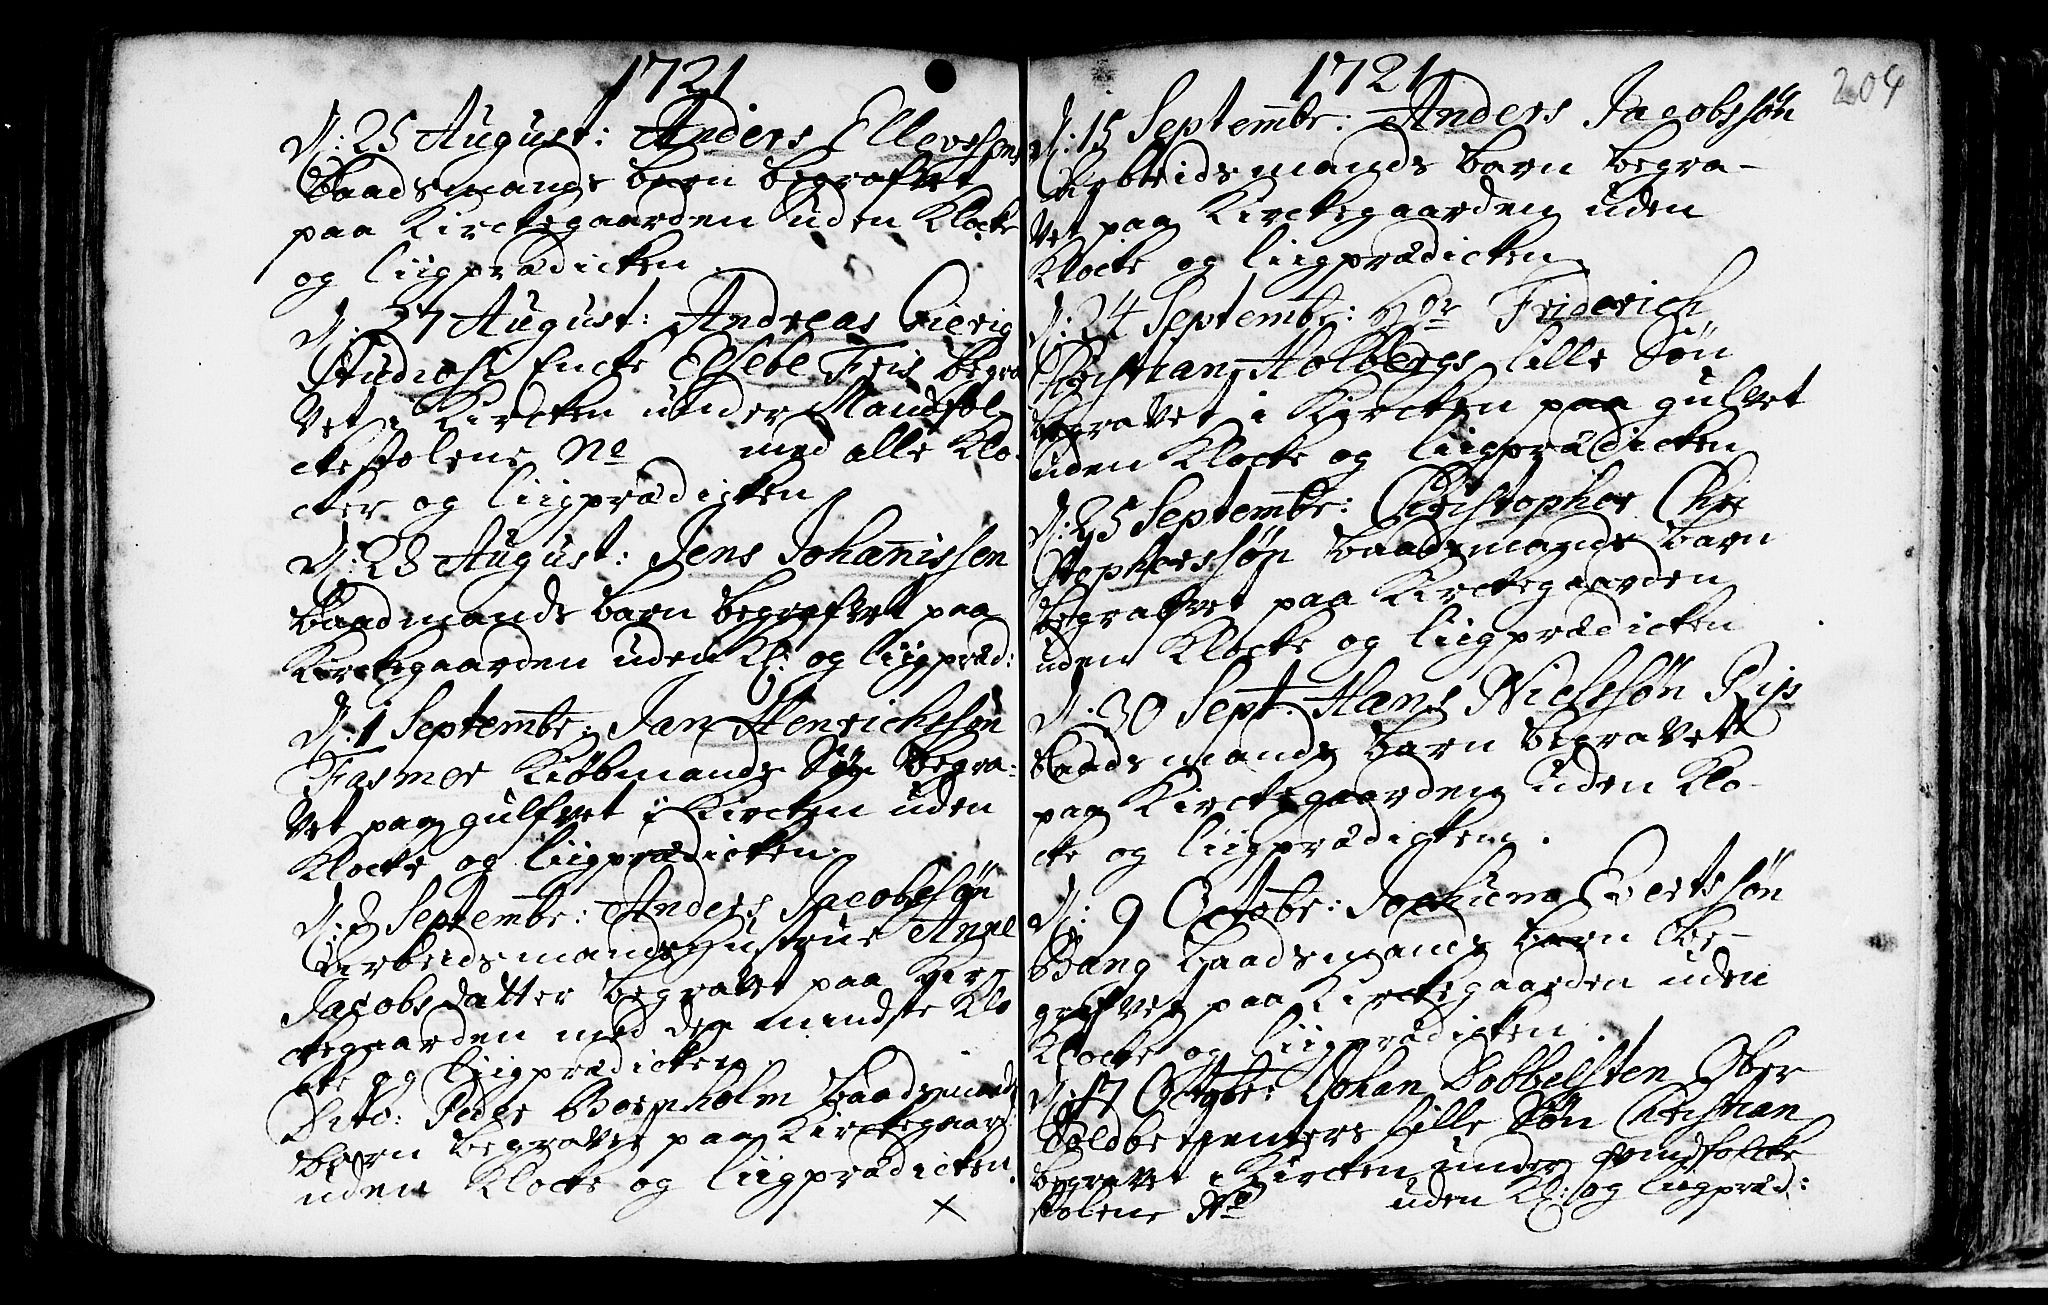 1721
d: 25 August: Anders Ellevssøns
baadsmands barn begrafvet
paa Kirckegaarden uden Klocke
og liigprædicken
d. 27 August: Andreas Gierig
Studiosi Encke Elsebe Friis begra
vet i Kircken under Mandfol
ckestolene No med alle Klo
cker og liigprædicken
d. 28 August: Jens Johannissøn
baadmands barn begrafvet paa
Kirckegaarden uden Kl: og liigpræd:
d: 1 Septembr: Jan Henrichssøn
Fasmer Kiøbmands Søn begra-
vet paa gulfvet i Kircken uden
Klocke og liigprædicken
d: 3 Septembr: Anders Jacobssøn
Arbeidsmands Hustrue Anne
Jacobsdatter begravet paa Kir
ckegaarden med den mindste Klo
cke og liigprædicken
Dito: Peder Bornholm baadsmands
barn begravet paa Kirckegaar:
uden Klocke og liigprædicken.
1721
204
d: 15 Septembr: Anders Jacobssøn
Arbeidsmands barn begra-
vet paa Kirckegaarden uden
Klocke og liigprædicken
d: 24 Septembr: Hor Friderich
Christian Holbergs lille Søn
begravet i Kircken paa gulvet
uden Klocke og liigprædicken
d: 25 Septembr: Christopher Chri
stophersSøn baadsmands barn
begrafvet paa Kirckegaarden
uden Klocke og liigprædicken
d. 30 Sept. Hans Nielssøn Riis
baadsmands barn begravett
paa Kirckegaarden uden Klo-
cke og liigprædicken.
d: 9 Octobr: Jochum Evertssøn
Bang baadsmands barn be-
grafvet paa Kirckegaarden uden
Klocke og liigprædicken
d: 17 Octobr: Johan Dobbelsten Ober
Toldbetienters lille Søn Christian
begravet i Kircken under qvindfolcke
stolene No uden Kl: og liigpræd: